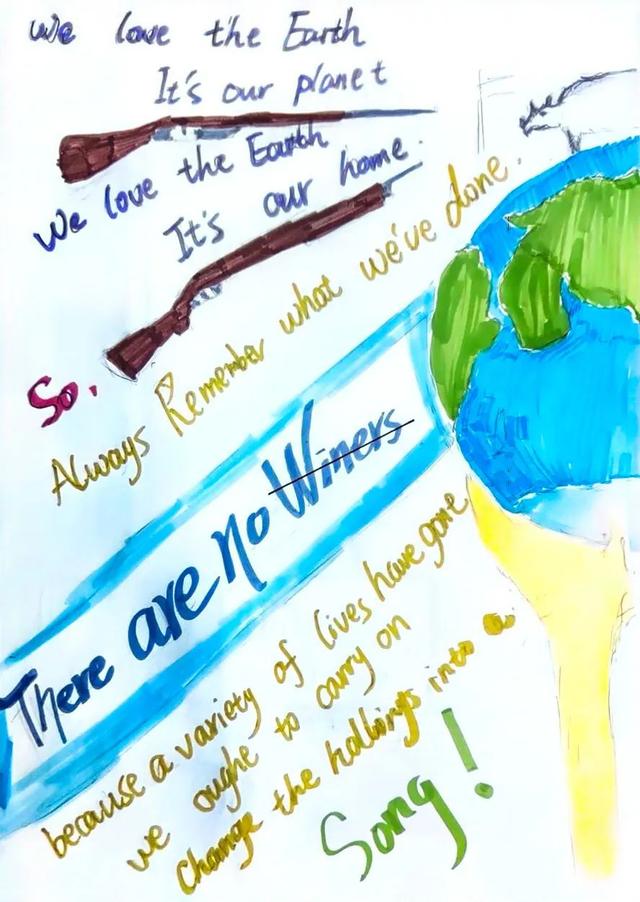 We love the Earth
It's our planet
We love the Earth
It's our home.
So.
Always Remember what we've done.
There are no Winers
because a variety of lives have gone
we oughe to carry on
Change the hollings into a
Song!